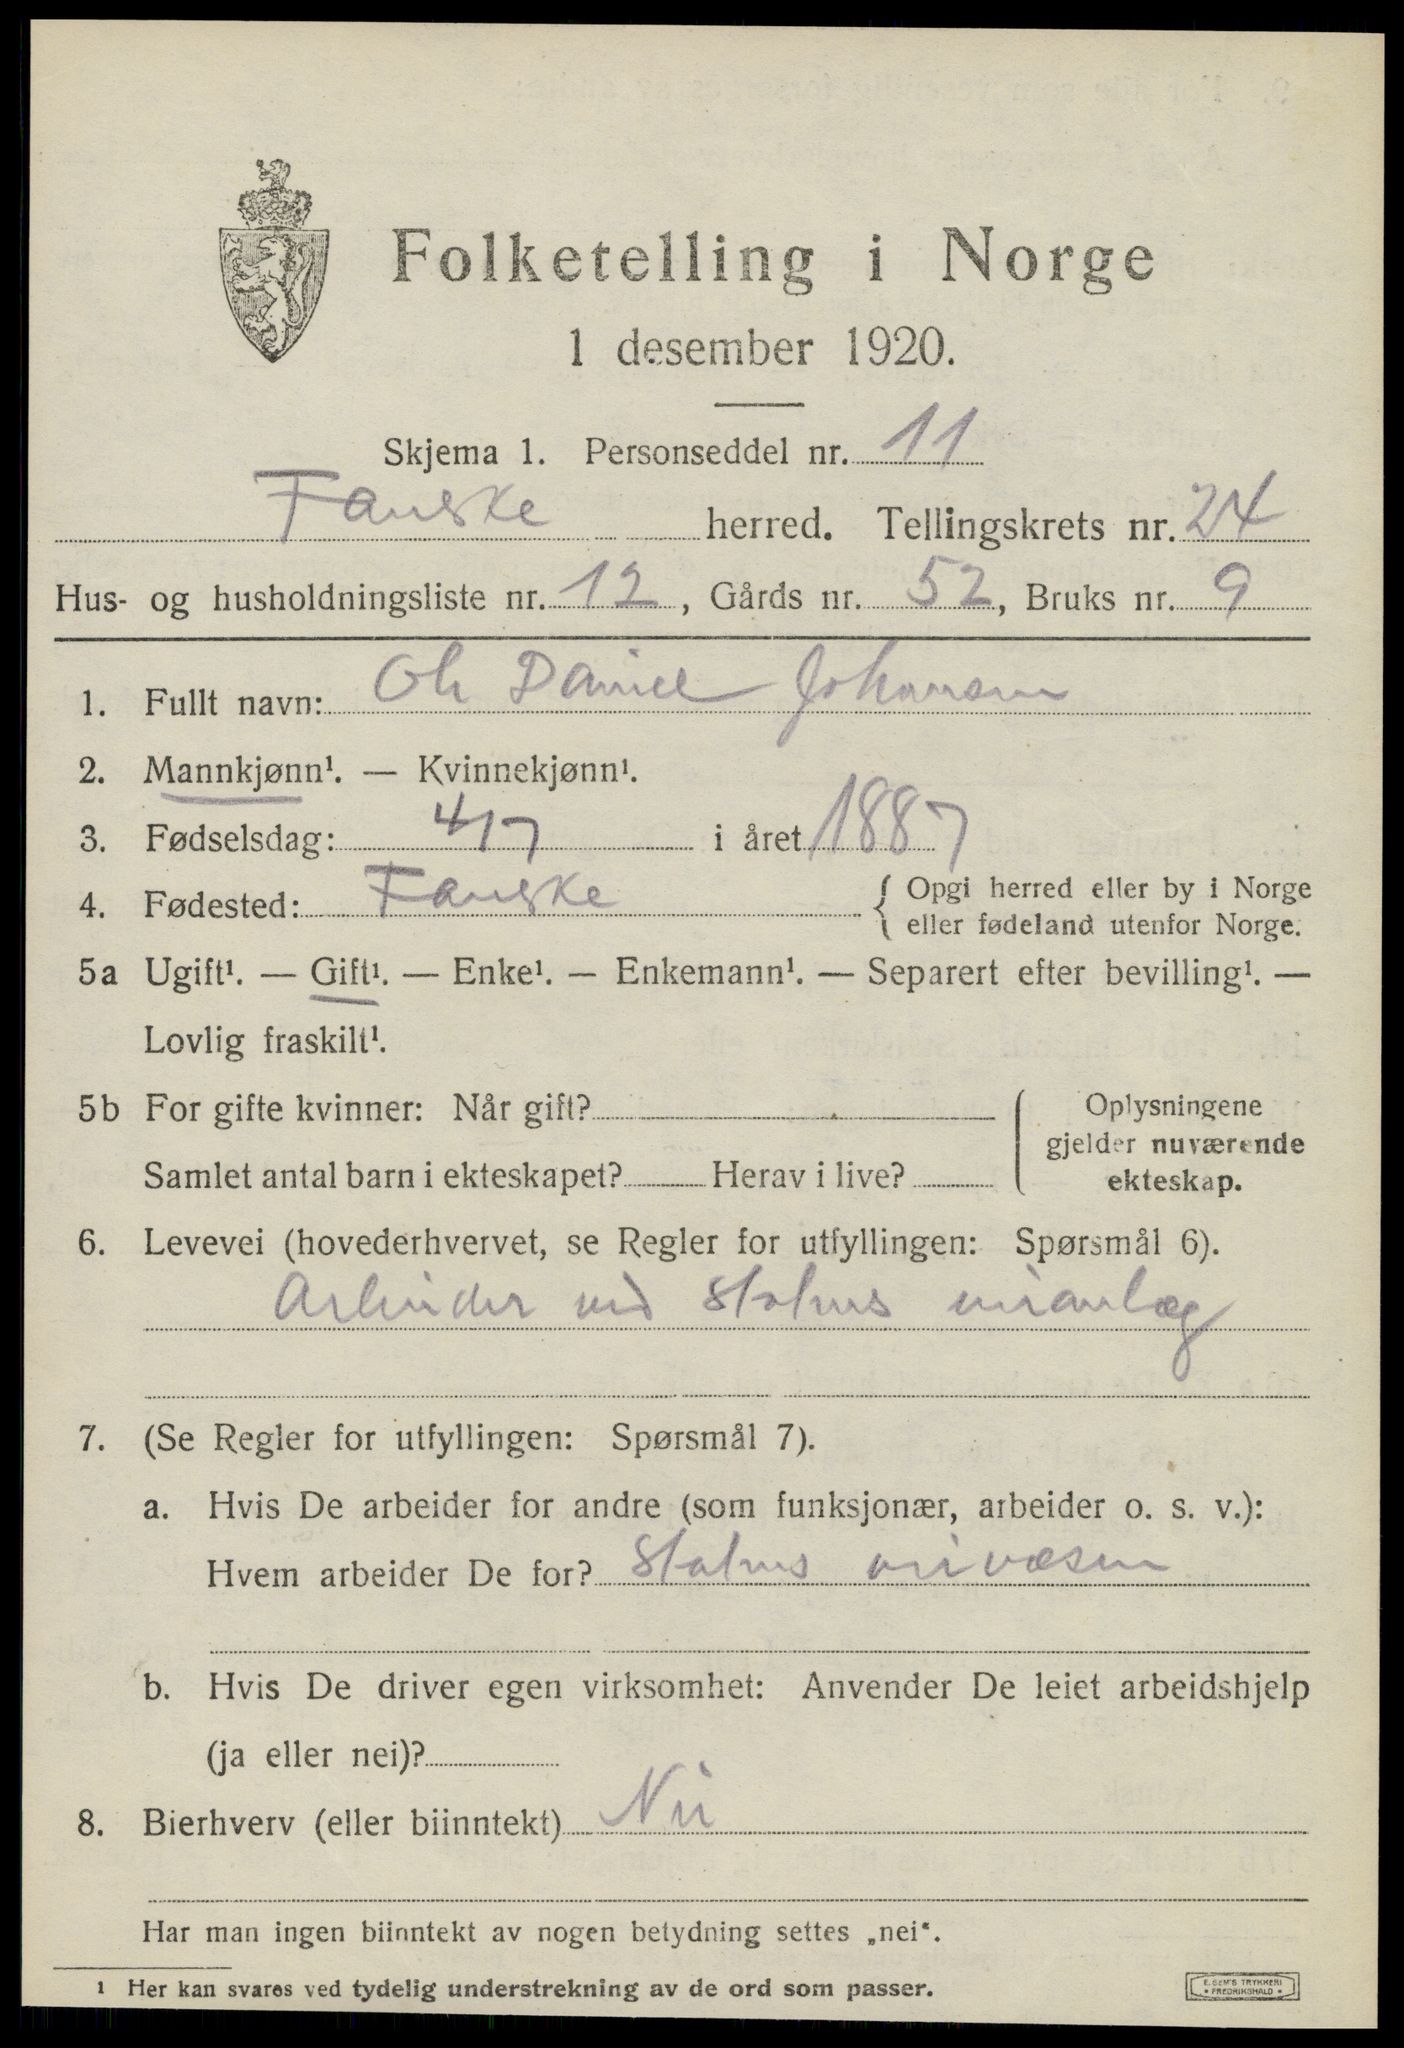 Folketelling i Norge
1 desember 1920.
Skjema 1. Personseddel nr. 11
Fauske herred. Tellingskrets nr. 24
Hus- og husholdningsliste nr. 12, Gårds nr. 52, Bruks nr. 9
1. Fullt navn: Ole Daniel Johansen
2. Mannkjønn¹. — Kvinnekjønn¹.
3. Fødselsdag: 4/7 i året 1887
4. Fødested: Fauske { Opgi herred eller by i Norge
eller fødeland utenfor Norge.
5a Ugift¹. — Gift¹. — Enke¹. — Enkemann¹. — Separert efter bevilling¹. —
Lovlig fraskilt¹.
5b For gifte kvinner: Når gift?
Samlet antal barn i ekteskapet? Herav i live?
Oplysningene
gjelder nuværende
ekteskap.
6. Levevei (hovederhvervet, se Regler for utfyllingen: Spørsmål 6).
Arbeider ved Statens veianlæg
7. (Se Regler for utfyllingen: Spørsmål 7).
a. Hvis De arbeider for andre (som funksjonær, arbeider o. s. v.):
Hvem arbeider De for? Statens veivæsen
b. Hvis De driver egen virksomhet: Anvender De leiet arbeidshjelp
(ja eller nei)?
8. Bierhverv (eller biinntekt) Nei
Har man ingen biinntekt av nogen betydning settes „nei“.
¹ Her kan svares ved tydelig understrekning av de ord som passer.
E. SEM'S TRYKKERI
FREDRIKSHALD